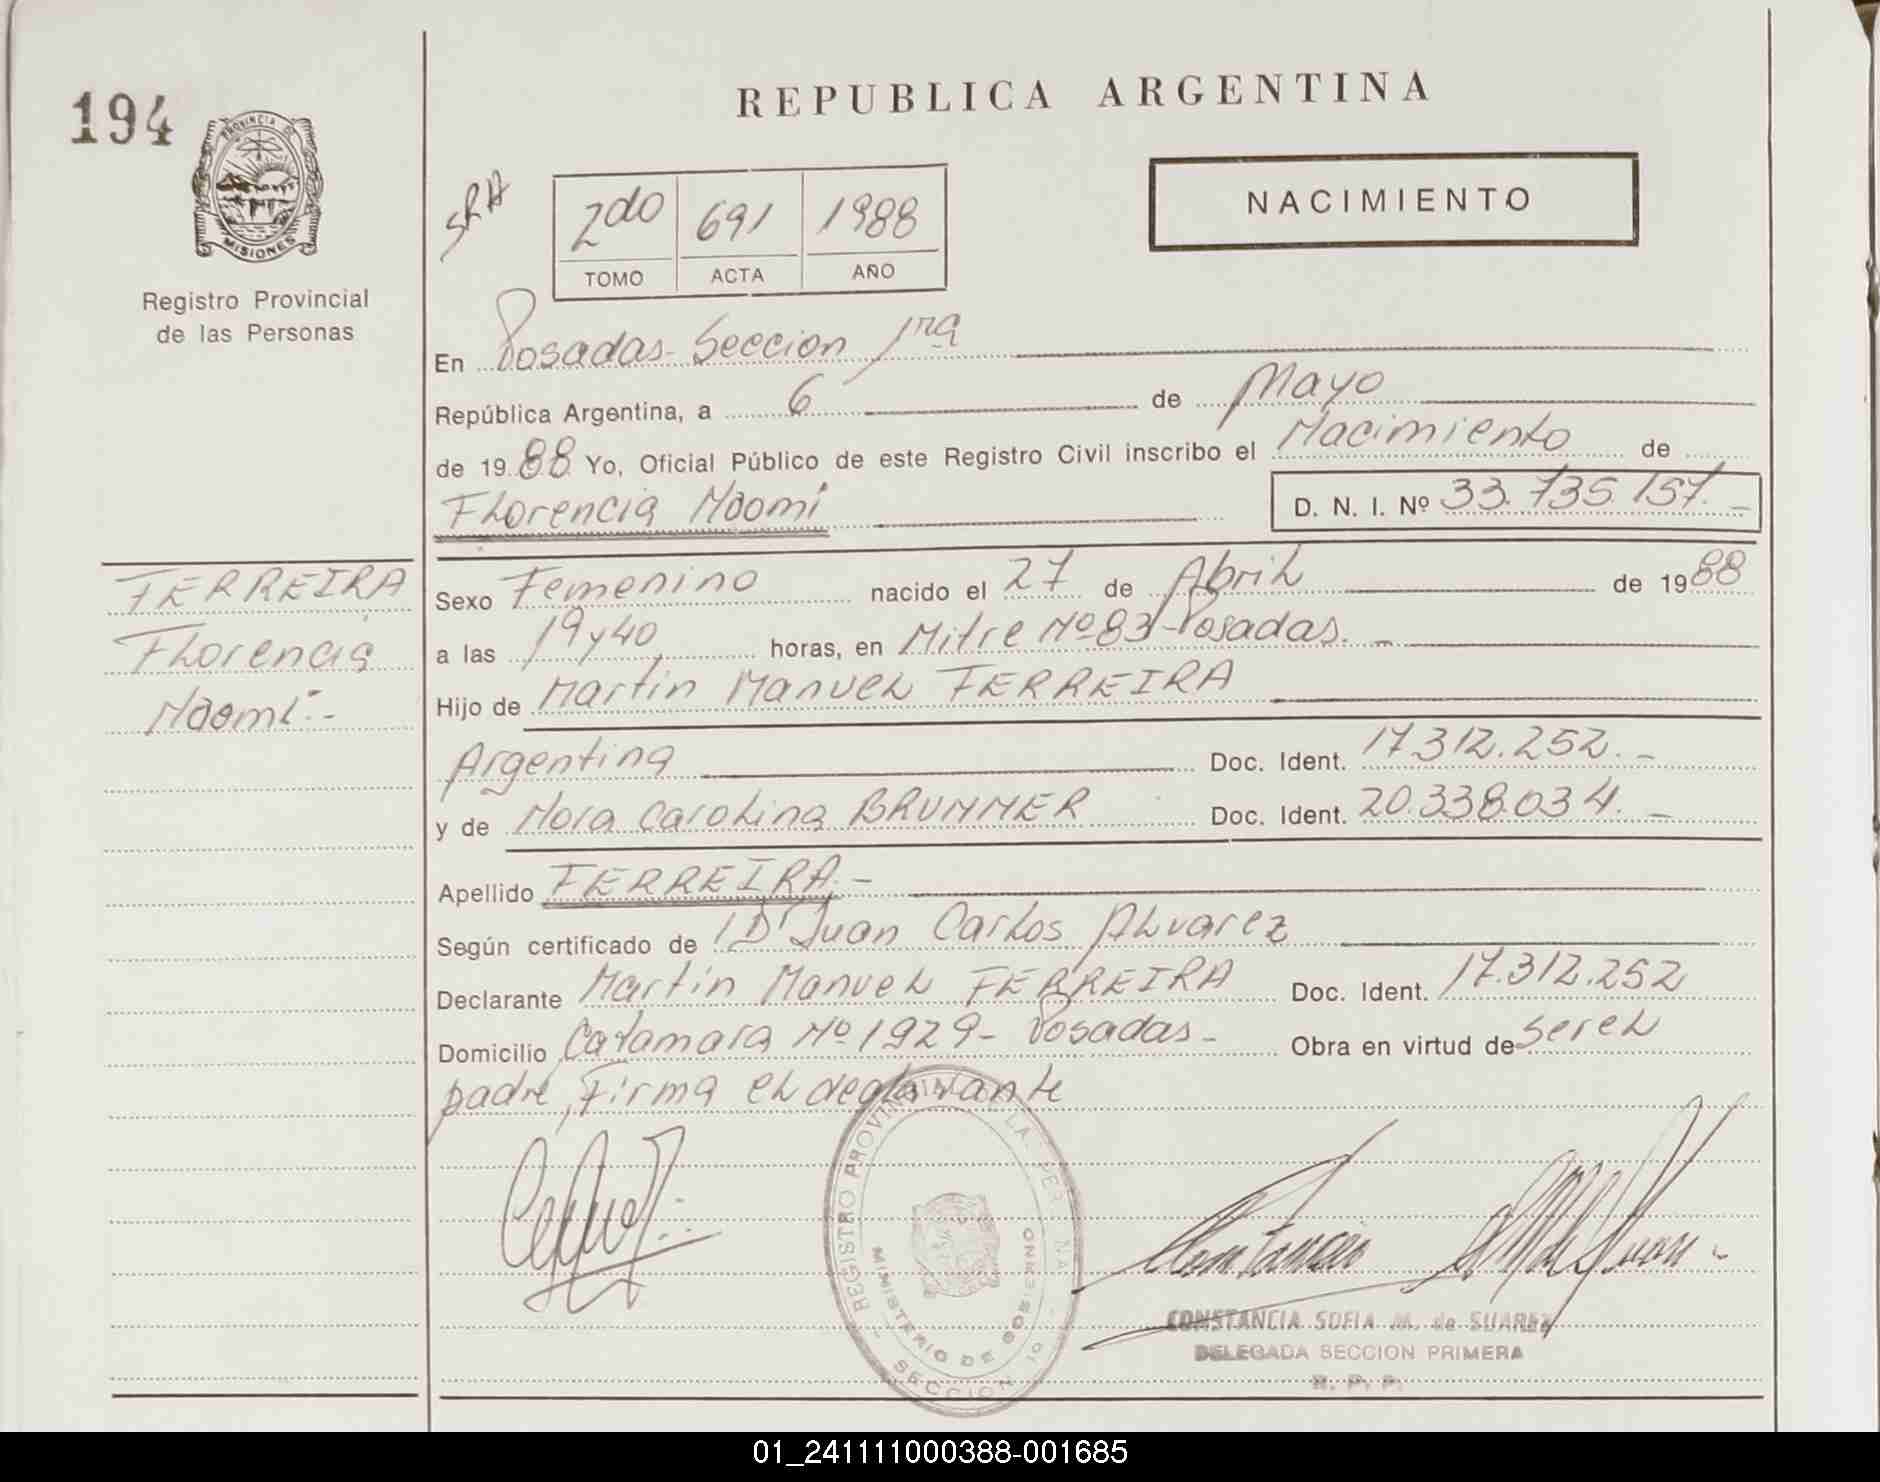 194
PROVINCIA DE
MISIONES
Registro Provincial
de las Personas
REPUBLICA ARGENTINA
SRA
2do 691 1988
TOMO ACTA AÑO
NACIMIENTO
En Posadas - Seccion 1ra
República Argentina, a 6 de Mayo
de 1988 Yo, Oficial Público de este Registro Civil inscribo el Nacimiento de
Florencia Noomí D. N. I. Nº 33.735.157.-
FERREIRA
Florencia
Noomí.-
Sexo Femenino nacido el 27 de Abril de 1988
a las 19 y 40, horas, en Mitre Nº 83 - Posadas.-
Hijo de Martín Manuel FERREIRA
Argentina Doc. Ident. 17.312.252.-
y de Nora Carolina BRUMMER Doc. Ident. 20.338.034.-
Apellido FERREIRA.-
Según certificado de Juan Carlos Alvarez
Declarante Martín Manuel FERREIRA Doc. Ident. 17.312.252
Domicilio Catamara Nº 1929 - Posadas - Obra en virtud de ser el
padre, Firma el declarante
REGISTRO PROVINCIAL LA
MINISTERIO DE GOBIERNO
SECCION
CONSTANCIA SOFIA M. de SUAREZ
DELEGADA SECCION PRIMERA
R. P. P.
01_241111000388-001685